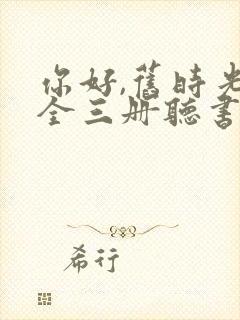 你好,舊時光
全三册聽書
希行